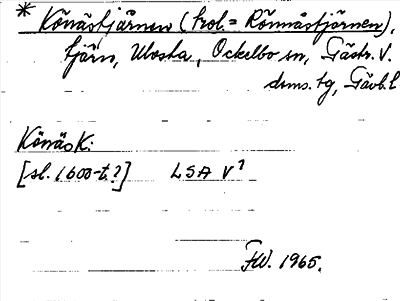 * Könäs​tjärnen (trol. = Rönnåstjärnen),
tjärn, Ulvsta, Ockelbo sn, Gästr. V.
doms. tg, Gävb. l
Könäs K:
[sl. 1600-t.?] LSA V?
FW. 1965.